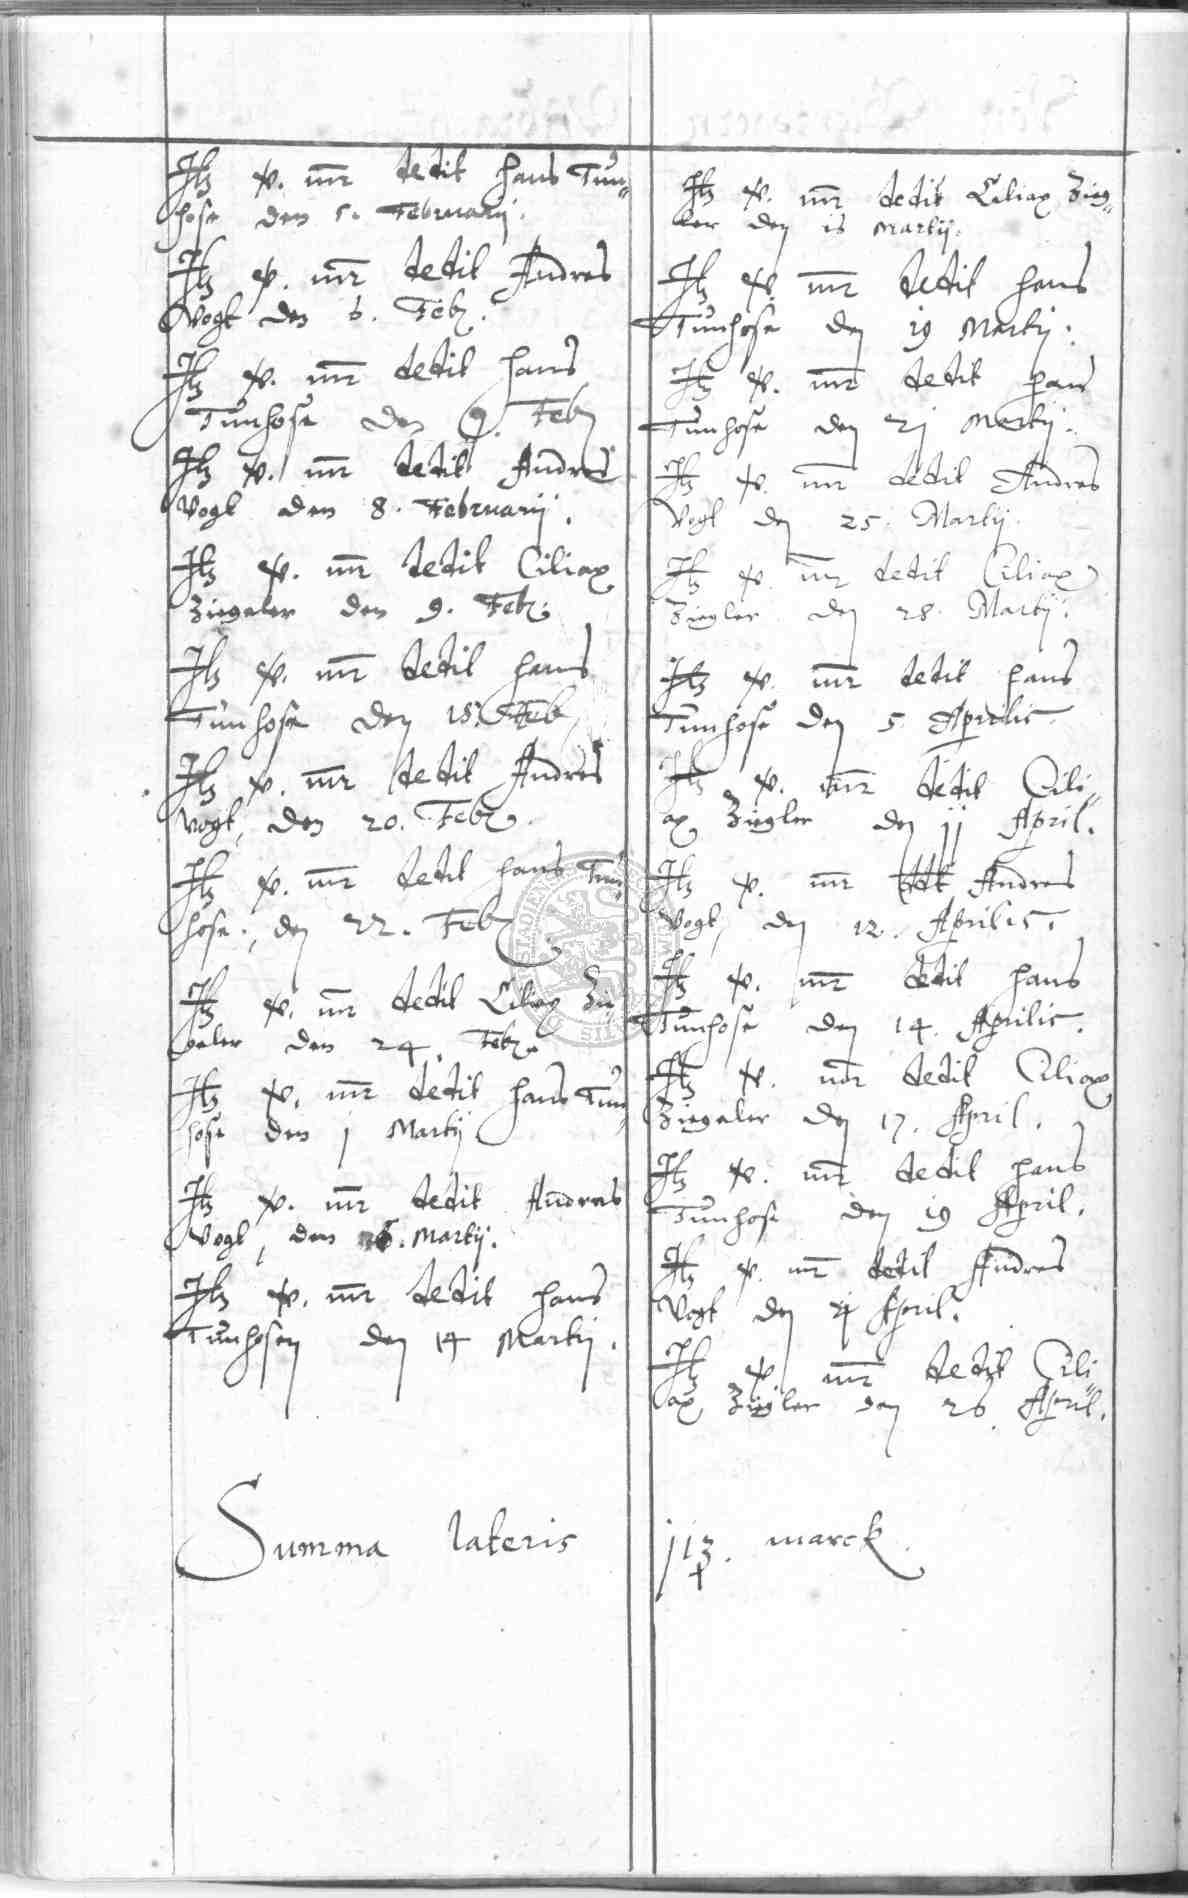 Itz v. mr dedit Hans Tun„
hose den 5. Februarij.
Itz v. mr dedit Andres
Vogt den 6. Feb:
Itz v. mr dedit Hans
Tunhose den Feb
Itz v. mr dedit Andres
Vogt den 8. Februarij.
Itz v. mr dedit Ciliax
Ziegeler den 9. Feb:
Itz v. mr dedit Hans
Tunhose den 15. Feb
Itz v. mr dedit Andres
Vogt, den 20. Feb.
Itz v. mr dedit Hans Tun„
hose, den 22. Feb
Itz v. mr dedit Ciliax Zie„
geler den 24. Feb.
Itz v. mr dedit Hans Tun„
hose den j Martij
Itz v. mr dedit Andres
Vogt, den Martij.
Itz v. mr dedit Hans
Tunhosen den 14 Martij.
Itz v. mr dedit Ciliax Zieg„
ler den 18 Martij.
Itz v. mr dedit Hans
Tunhose den 19 Martij.
Itz v. mr dedit Hans
Tunhose den 2j Martij.
Itz v. mr dedit Andres
Vogt den 25. Martij.
Itz v. mr dedit Ciliax
Ziegler den 28. Martij.
Itz v. mr dedit Hans
Tunhose den 5. Aprilis.
Itz v. mr dedit Cili„
ax Ziegler den jj April.
Itz v. mr Andres
Vogt, den 12. Aprilis.
Itz v. mr dedit Hans
Tunhose den 14. Aprilis.
Itz v. mr dedit Ciliax
Ziegeler den 17. April.
Itz v. mr dedit Hans
Tunhose den 19 April.
Itz v. mr dedit Andres
Vogt den April.
Itz v. mr dedit Cili„
ax Ziegler den 26 April.
Summa lateris jj3. marck.